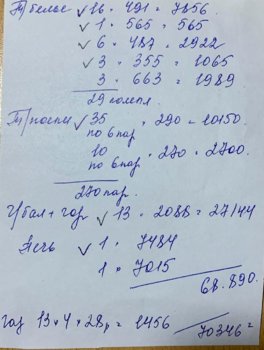 Тубелье √ 16 × 491 = 7856
√ 1 × 565 = 565
√ 6 × 487 = 2922
√ 3 × 355 = 1065
3 × 663 = 1989
29 компл.
Т/носки √ 35 × 290 = 10150.
по 6 пар
10 × 270 = 2700.
по 6 пар
270 пар.
√ 13 × 2088 = 27144
Печь √ 1 × 7484
1 × 7015
68.890.
газ 13 × 4 × 28р = 1456
70346 =